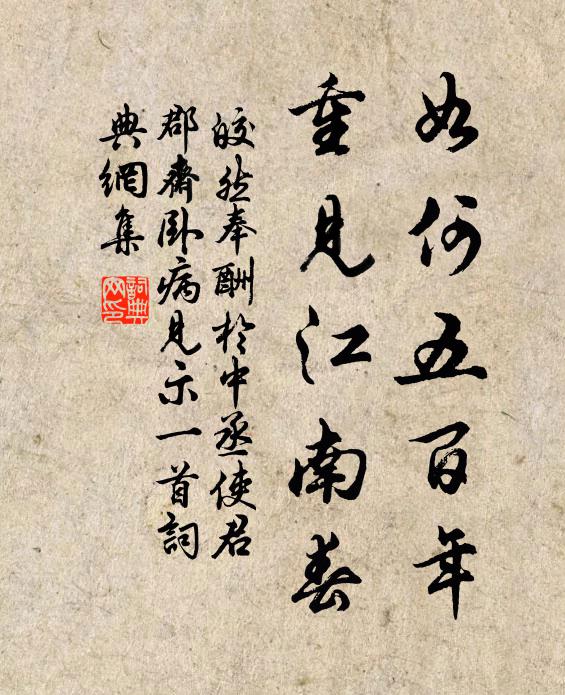 如何五百年
重見江南春
皎然奉酬於中丞使君
郡齋臥病見示一首詞
典網集
詞典網印